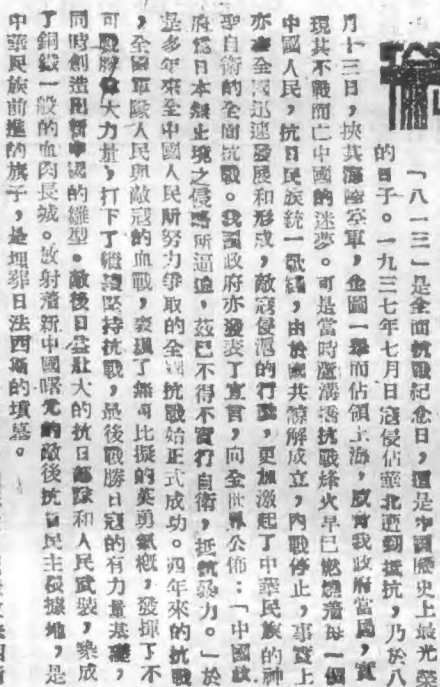 論
「八一三」是全面抗戰紀念日,還是中國歷史上最光榮
的日子。一九三七年七月日寇侵佔華北遭到抵抗,乃於八
月十三日,挾其海陸空軍,企圖一舉而佔領上海,威脅我政府當局,實
現其不戰而亡中國的迷夢。可是當時蘆溝橋抗戰烽火早已燃燒着每一個
中國人民,抗日民族統一戰線,由於國共諒解成立,內戰停止,事實上
亦在全國迅速發展和形成,敵寇侵滬的行動,更加激起了中華民族的神
聖自衛的全面抗戰。我國政府亦發表了宣言,向全世界公佈:「中國政
府爲日本無止境之侵略所逼迫,茲已不得不實行自衛,抵抗暴力。」於
是多年來全中國人民所努力爭取的全國抗戰始正式成功。四年來的抗戰
,全國軍隊人民與敵寇的血戰,表現了無可比擬的英勇氣概,發揮了不
可戰勝偉大力量,打下了繼續堅持抗戰,最後戰勝日寇的有力量基礎,
同時創造出新中國的雛型。敵後日益壯大的抗日部隊和人民武裝,築成
了銅鐵一般的血肉長城。放射着新中國曙光的敵後抗日民主根據地,是
中華民族前進的旗子,是埋葬日法西斯的墳墓。